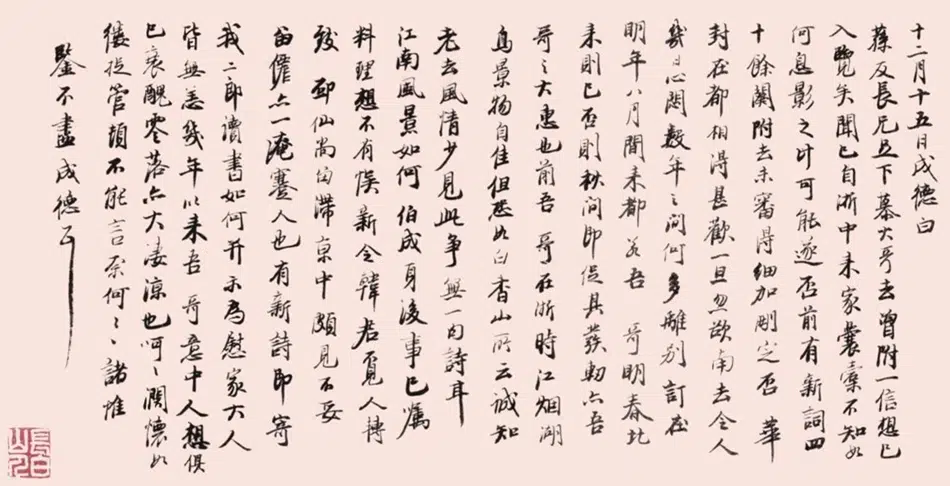 十二月十五日成德白
蓀友長兄足下慕大哥去曾附一信想已
入覽矣聞已自浙中來家囊橐不知如
何息影之計可能遂否前有新詞四
十餘闋附去未審得細加刪定否 華
封在都相得甚歡一旦忽欲南去令人
幾日心悶數年之間何多離別訂在
明年八月間來都若吾 哥明春北
來則已否則秋間即促其發軔亦吾
哥之大惠也前吾 哥在浙時江烟湖
鳥景物自佳但恐如白香山所云誠知
老去風情少見此爭無一句詩耳
江南風景如何 伯成身後事已囑
料理想不有悞新令韓君覓人轉
致 仙尚留滯京中頗見不妥
亦一淹蹇人也有新詩即寄
我二郎讀書如何并示為慰家大人
皆無恙幾年以來吾 哥意中人想俱
已衰醜零落亦大凄凉也呵呵闊懷如
縷提管頓不能言奈何奈何諸惟
鑒不盡成德